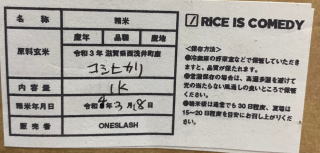 名称 精米
原料玄米 産年 品種 産地
令和3年 滋賀県西浅井町産
コシヒカリ
内容量 1K
精米年月日 令和4年3月18日
販売者 ONESLASH
RICE IS COMEDY
<保存方法>
●冷蔵庫の野菜室などで保管していただきますと、品質が保たれます。
●常温保存の場合は、高温多湿を避けて光の当たらない風通しの良いところで保管ください。
●精米後は通常でも30日程度、夏場は15〜20日程度を目安にお召し上がりください。